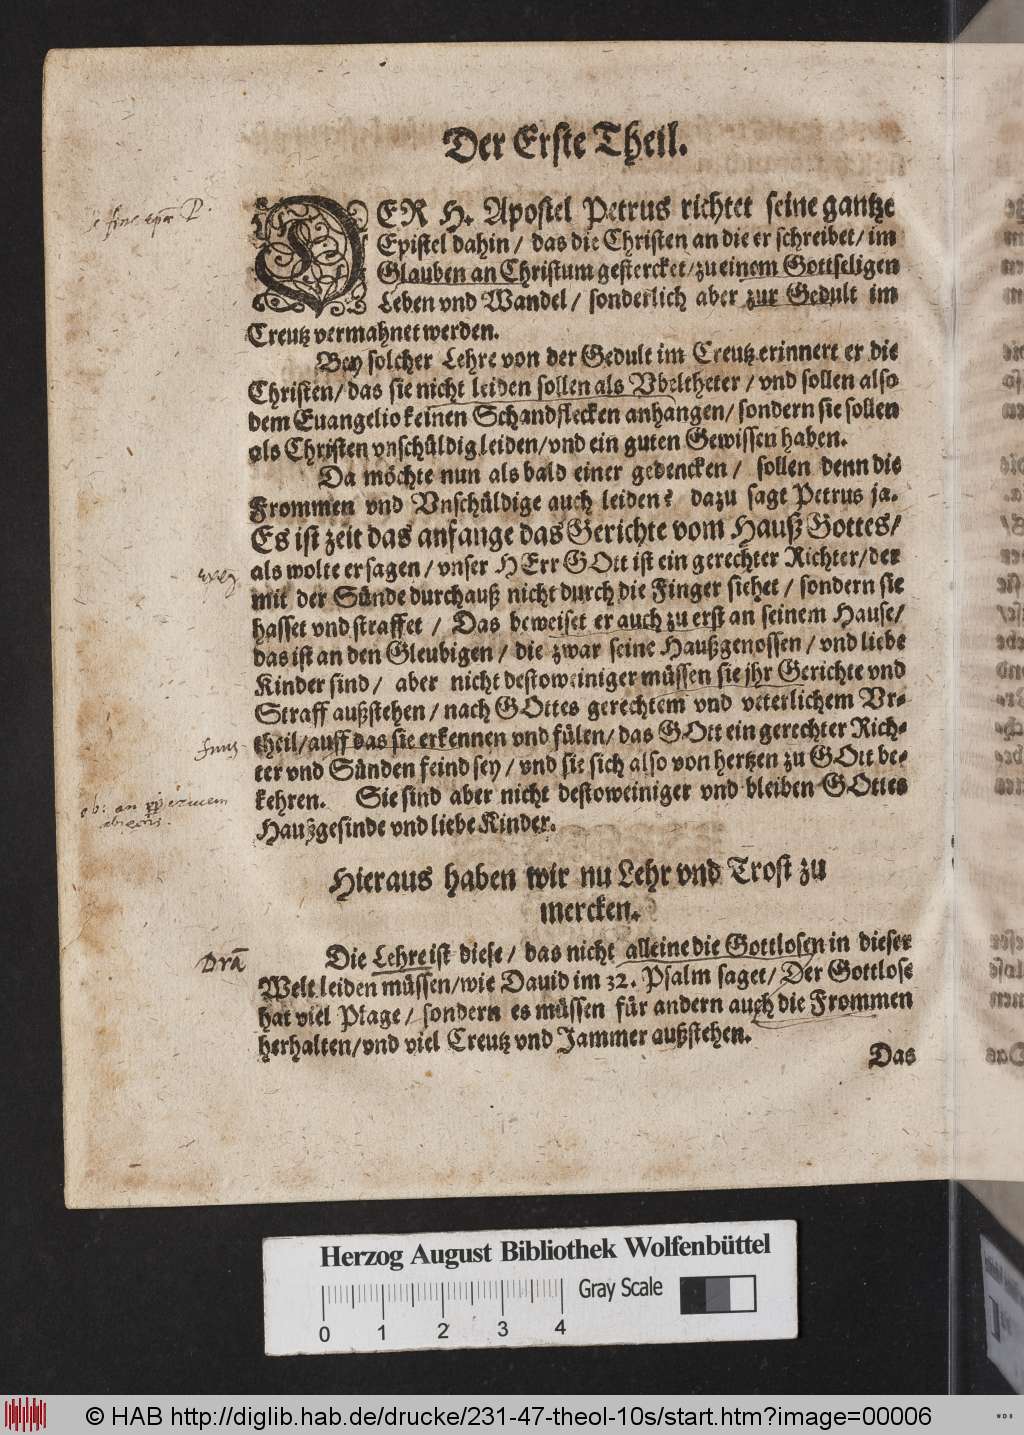 Der Erste Theil.
DER H. Apostel Petrus richtet seine gantze
Epistel dahin / das die Christen an die er schreibet / im
Glauben an Christum gestercket / zu einem Gottseligen
Leben vnd Wandel / sonderlich aber zur Gedult im
Creutz vermahnet werden.
Bey solcher Lehre von der Gedult im Creutz erinnert er die
Christen / das sie nicht leiden sollen als Vbeltheter / vnd sollen also
dem Euangelio keinen Schandflecken anhangen / sondern sie sollen
als Christen vnschüldig leiden / vnd ein guten Gewissen haben.
Da möchte nun als bald einer gedencken / sollen denn die
Frommen vnd Vnschüldige auch leiden? dazu sagt Petrus ja.
Es ist zeit das anfange das Gerichte vom Hauß Gottes /
als wolte er sagen / vnser HErr GOtt ist ein gerechter Richter / der
mit der Sünde durchauß nicht durch die Finger siehet / sondern sie
hasset vnd straffet / Das beweiset er auch zu erst an seinem Hause /
das ist an den Gleubigen / die zwar seine Haußgenossen / vnd liebe
Kinder sind / aber nicht destoweiniger müssen sie jhr Gerichte vnd
Straff außstehen / nach GOttes gerechtem vnd veterlichem Vr-
theil / auff das sie erkennen vnd fülen / das GOtt ein gerechter Rich-
ter vnd Sünden feind sey / vnd sie sich also von hertzen zu GOtt be-
kehren. Sie sind aber nicht destoweiniger vnd bleiben GOttes
Haußgesinde vnd liebe Kinder.
Hieraus haben wir nu Lehr vnd Trost zu
mercken.
Die Lehre ist diese / das nicht alleine die Gottlosen in dieser
Welt leiden müssen / wie Dauid im 32. Psalm saget / Der Gottlose
hat viel Plage / sondern es müssen für andern auch die Frommen
herhalten / vnd viel Creutz vnd Jammer außstehen.
Das
Herzog August Bibliothek Wolfenbüttel
Gray Scale
0 1 2 3 4
© HAB http://diglib.hab.de/drucke/231-47-theol-10s/start.htm?image=00006